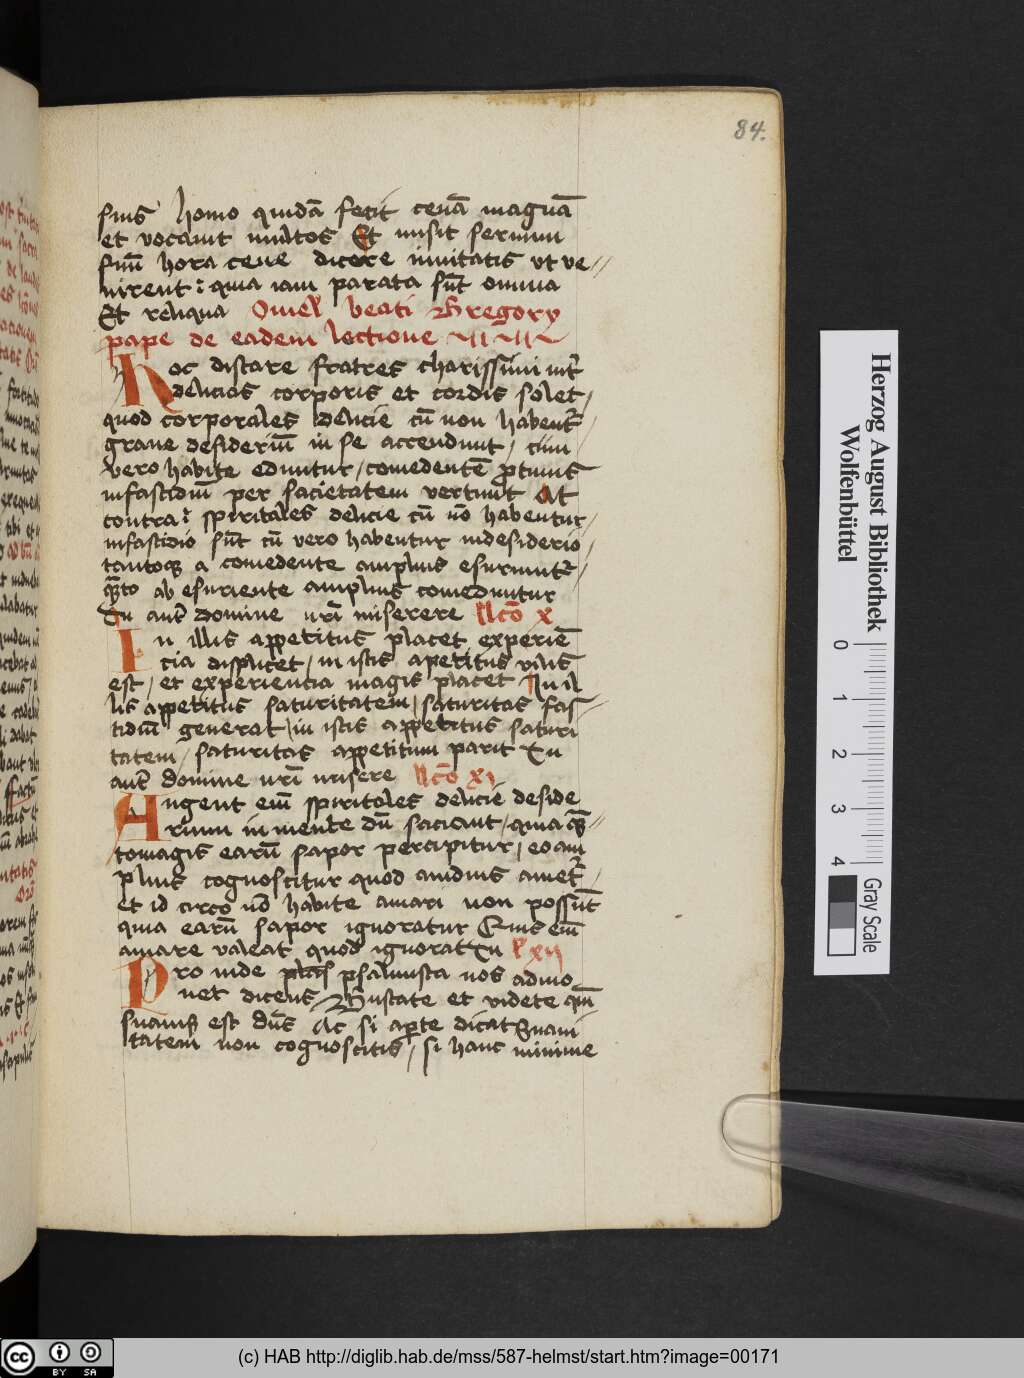 84.
suis homo quidā fecit cenā magnā
et vocauit multos Et misit seruum
suū hora cene dicere inuitatis vt ve//
nirent : quia iam parata sūt omnia
Et reliqua Omel beati Gregory
pape de eadem lectione
Hoc distare fratres charissimi int̄
delicias corporis et cordis solet /
quod corporales delicie cū non habent̄
graue desideriū in se accendunt / cum
vero habite eduntur / comedentē protinus
infastidiū per sacietatem vertunt At
contra : spiritales delicie cū nō habentur /
infastidio sūt cū vero habentur indesiderio /
tantoqꝫ a comedente amplius esuriunt̄ /
quāto ab esuriente amplius comeduntur
Tu aut̄ domine nr̄i miserere Lc̄o x
In illis appetitus placet experiē
cia displicet / in istis apetitus vilis
est / et experiencia magis placet In il
lis appetitus saturitatem / saturitas fas
tidiū generat / in istis appetitus saturi
tatem / saturitas appetitum parit Tu
aut̄ domine nr̄i misere Lc̄o xi
Augent em̄ spiritales delicie deside
rium in mente dū saciant / quia quā//
tomagis earū sapor percipitur / eo am
plius cognoscitur quod auidius amet̄ /
et id circo nō habite amari non possūt
quia earū sapor ignoratur Quis em̄
amare valeat quod ignorat Tu L xii
Pro inde psalmista nos admo
net dicens / Gustate et videte qm̄
suauis est dn̄s Ac si aperte dicat Suaui
tatem non cognoscitis / si hanc minime
Herzog August Bibliothek
Wolfenbüttel
0 1 2 3 4
Gray Scale
cc BY SA
(c) HAB http://diglib.hab.de/mss/587-helmst/start.htm?image=00171